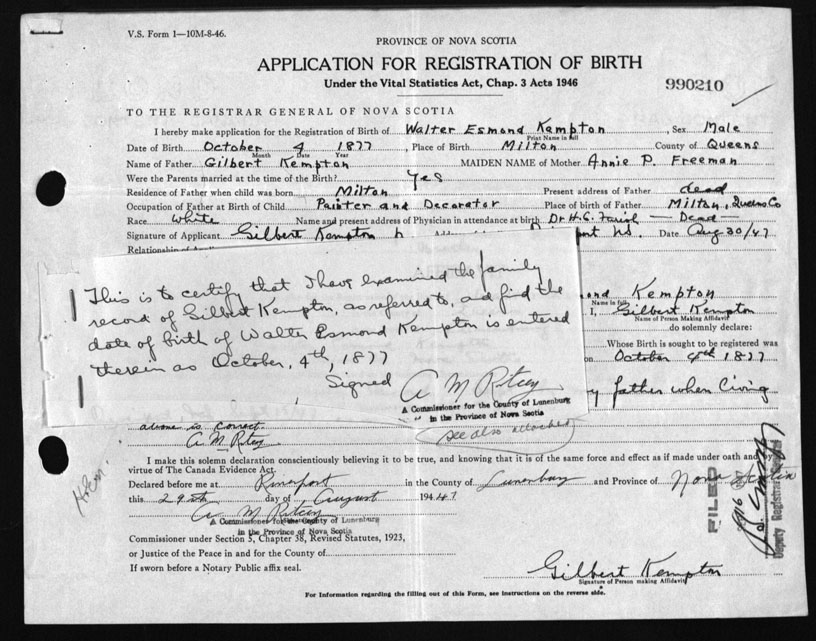 V.S. Form 1—10M-8-46.
PROVINCE OF NOVA SCOTIA
APPLICATION FOR REGISTRATION OF BIRTH
Under the Vital Statistics Act, Chap. 3 Acts 1946
990210
TO THE REGISTRAR GENERAL OF NOVA SCOTIA
I hereby make application for the Registration of Birth of Walter Esmond Kempton, Sex Male
Print Name in full
Date of Birth October 4 1877, Place of Birth Milton, County of Queens
Month Date Year
Name of Father Gilbert Kempton MAIDEN NAME of Mother Annie P. Freeman
Were the Parents married at the time of the Birth? Yes
Residence of Father when child was born Milton Present address of Father dead
Occupation of Father at Birth of Child Painter and Decorator Place of birth of Father Milton, Queens Co
Race White Name and present address of Physician in attendance at birth Dr H.G. Farish — Dead —
Signature of Applicant Gilbert Kempton NS. Date Aug 30/47
This is to certify that I have examined the family
record of Gilbert Kempton, as referred to, and find the
date of birth of Walter Esmond Kempton is entered
therein as October, 4th, 1877
Signed A M Ritcey
A Commissioner for the County of Lunenburg
in the Province of Nova Scotia
ond Kempton
Name in full
I, Gilbert Kempton
Name of Person Making Affidavit
do solemnly declare:
Whose Birth is sought to be registered was
on October 4th 1877
y father when living
above is correct
A M Ritcey
see also attached
I make this solemn declaration conscientiously believing it to be true, and knowing that it is of the same force and effect as if made under oath and by
virtue of The Canada Evidence Act.
Declared before me at Riverport in the County of Lunenburg and Province of Nova Scotia
this 29th day of August 194 47
A M Ritcey
A Commissioner for the County of Lunenburg
in the Province of Nova Scotia
Commissioner under Section 5, Chapter 38, Revised Statutes, 1923,
or Justice of the Peace in and for the County of
If sworn before a Notary Public affix seal.
FILED
Deputy Registrar
Gilbert Kempton
Signature of Person making Affidavit
For Information regarding the filling out of this Form, see instructions on the reverse side.